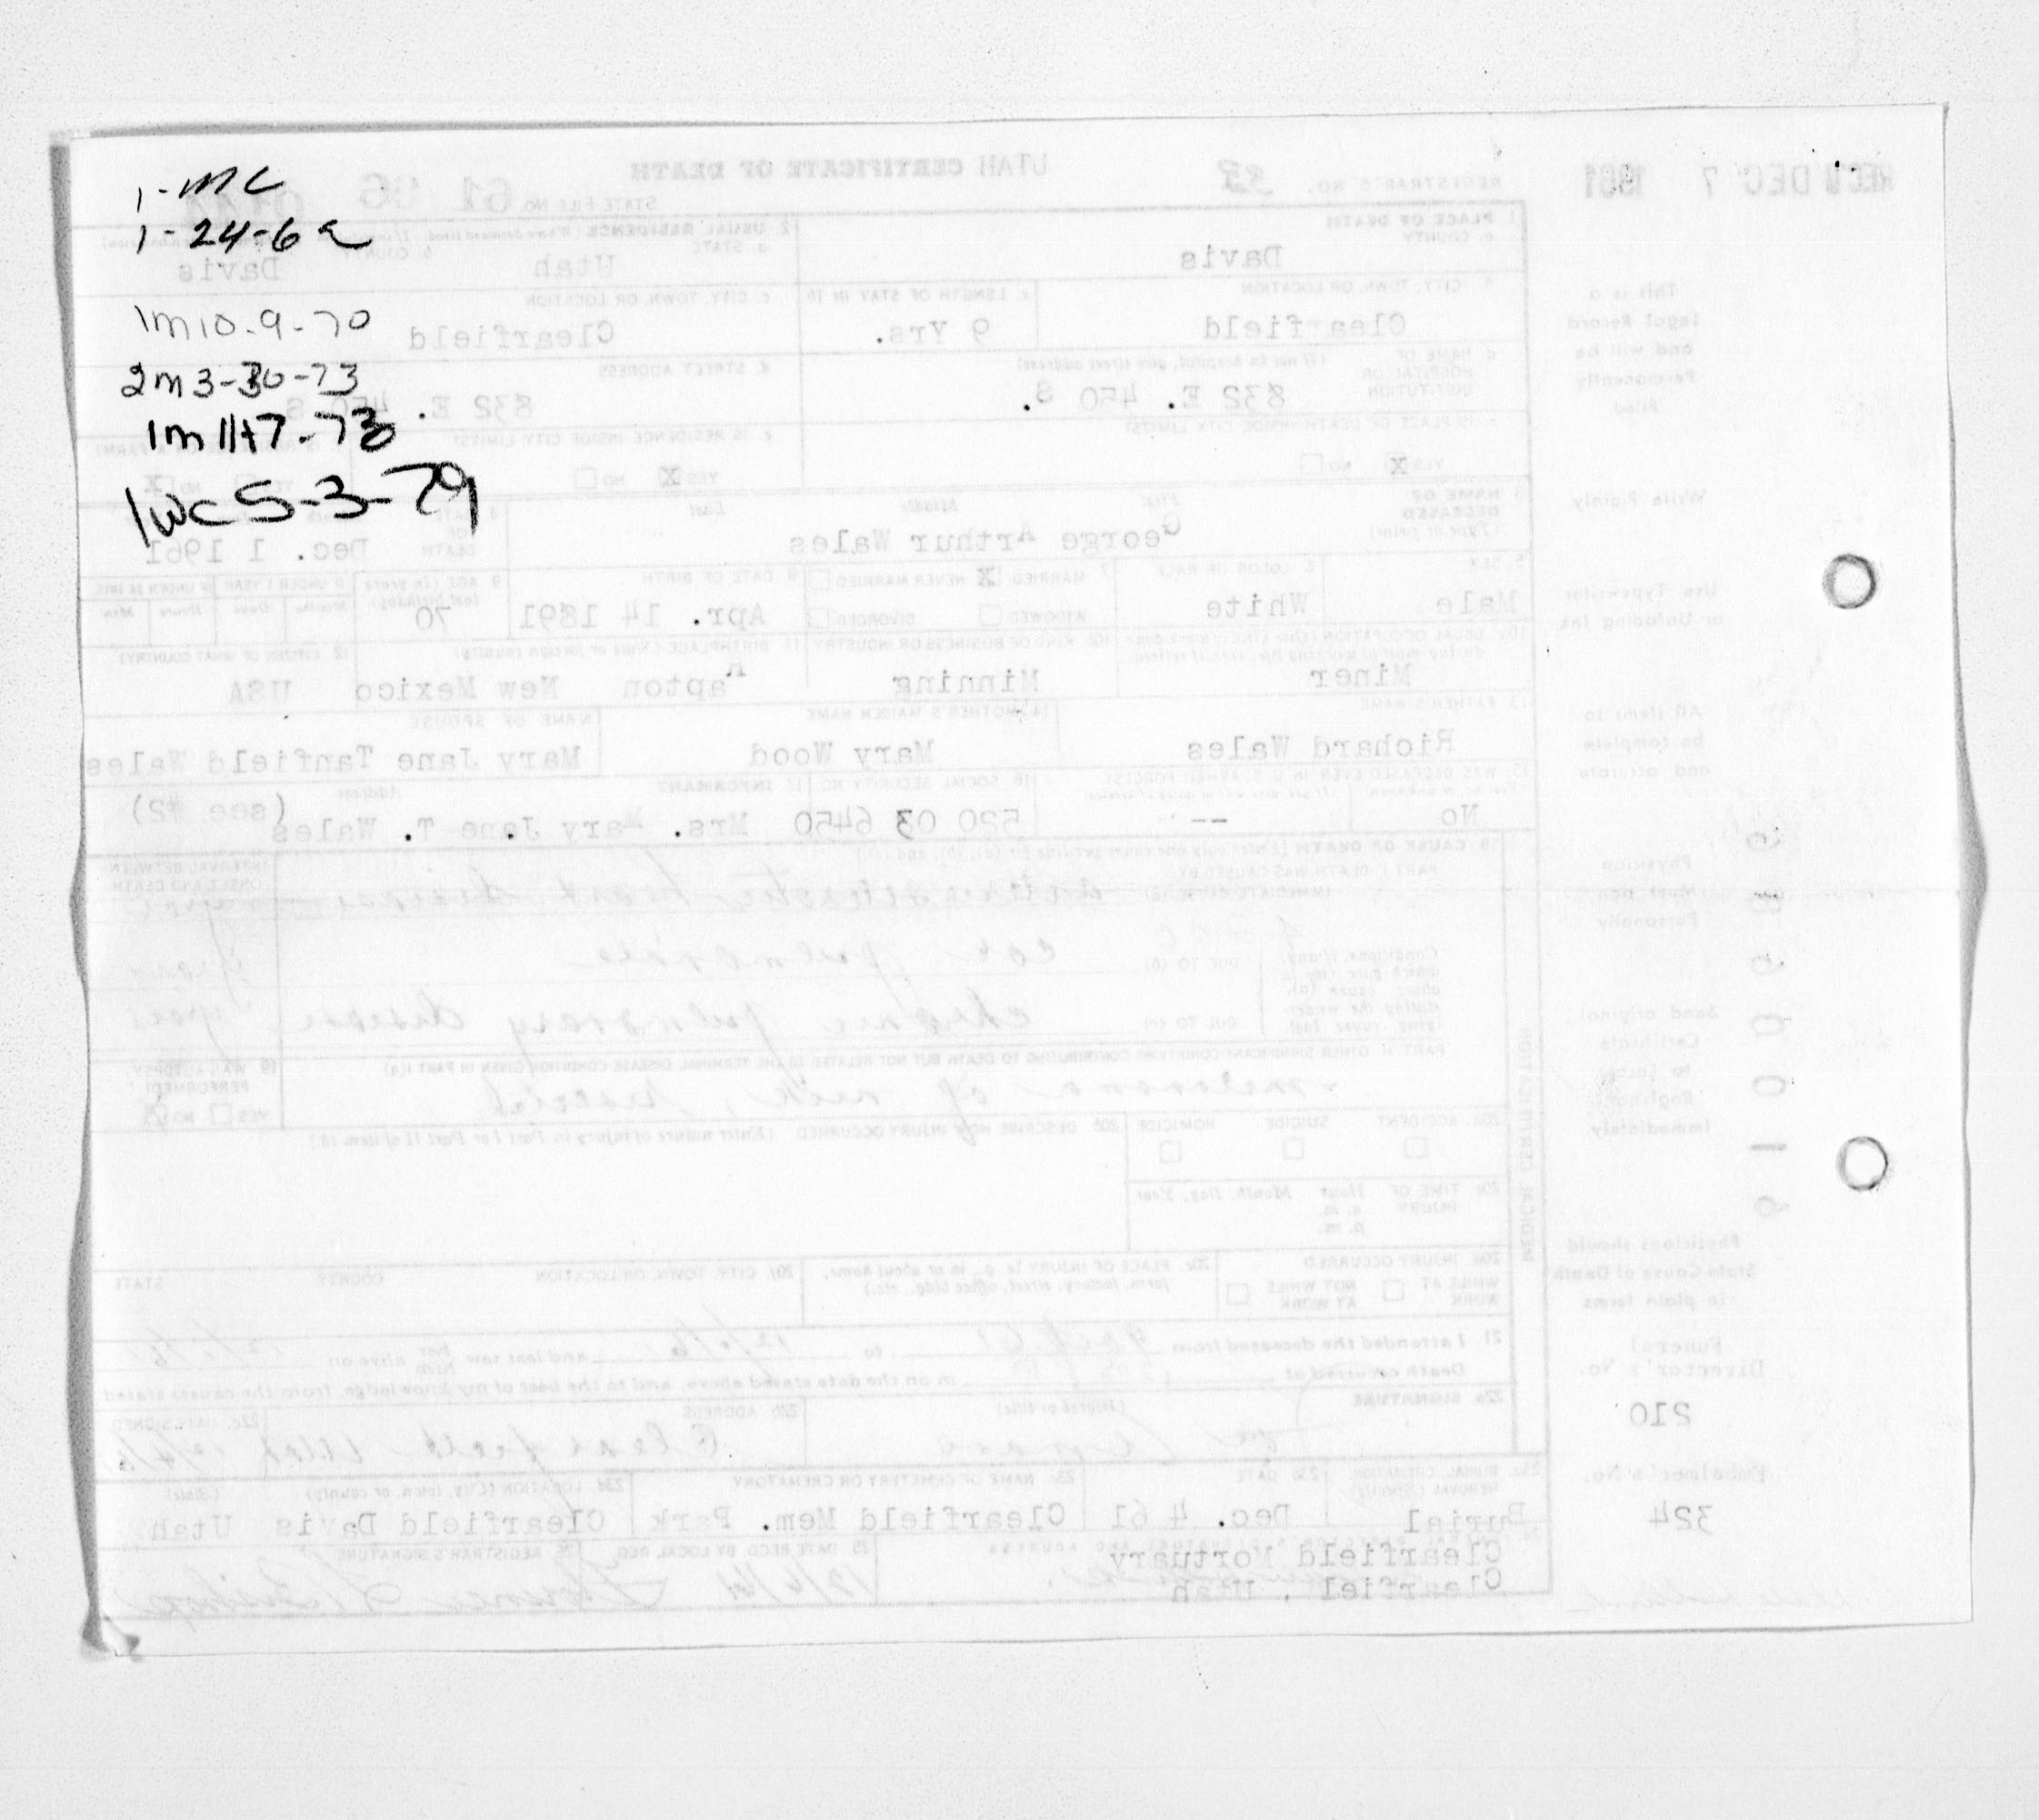 1-MC
1-24-62
1m 10-9-70
2m 3-30-73
1m 11-7-73
1wc 5-3-79
REC'D DEC 7 1961
UTAH CERTIFICATE OF DEATH
REGISTRAR'S NO. 33
STATE FILE NO. 61
1. PLACE OF DEATH
a. COUNTY
Davis
2. USUAL RESIDENCE
a. STATE
Utah
b. COUNTY
Davis
b. CITY, TOWN, OR LOCATION
Clearfield
c. LENGTH OF STAY IN 1b
9 Yrs.
c. CITY, TOWN, OR LOCATION
Clearfield
d. NAME OF HOSPITAL OR INSTITUTION
(If not in hospital, give street address)
832 E. 450 S.
d. STREET ADDRESS
832 E. 450 S
e. IS PLACE OF DEATH INSIDE CITY LIMITS?
YES X NO
e. IS RESIDENCE INSIDE CITY LIMITS?
YES X NO
NO X
3. NAME OF DECEASED
(Type or print)
First Middle Last
George Arthur Wales
4. DATE OF DEATH
Dec. 1 1961
5. SEX
Male
6. COLOR OR RACE
White
7. MARRIED X NEVER MARRIED
WIDOWED DIVORCED
8. DATE OF BIRTH
Apr. 14 1891
9. AGE (In years last birthday)
70
IF UNDER 1 YEAR
IF UNDER 24 HRS.
Months Days Hours Min.
10a. USUAL OCCUPATION
Miner
10b. KIND OF BUSINESS OR INDUSTRY
Minning
11. BIRTHPLACE (State or foreign country)
Rapton New Mexico
12. CITIZEN OF WHAT COUNTRY?
USA
13. FATHER'S NAME
Richard Wales
14. MOTHER'S MAIDEN NAME
Mary Wood
NAME OF SPOUSE
Mary Jane Tanfield Wales
15. WAS DECEASED EVER IN U. S. ARMED FORCES?
No --
16. SOCIAL SECURITY NO.
520 03 6450
17. INFORMANT Address
Mrs. Mary Jane T. Wales (see #2)
18. CAUSE OF DEATH
PART I. DEATH WAS CAUSED BY:
IMMEDIATE CAUSE (a) arteriosclerotic heart disease
INTERVAL BETWEEN ONSET AND DEATH
years
DUE TO (b) cor pulmonale
years
DUE TO (c) chronic pulmonary disease
years
PART II. OTHER SIGNIFICANT CONDITIONS CONTRIBUTING TO DEATH BUT NOT RELATED TO THE TERMINAL DISEASE CONDITION GIVEN IN PART I(a)
melanoma of neck,
19. WAS AUTOPSY PERFORMED?
YES NO X
20a. ACCIDENT SUICIDE HOMICIDE
20b. DESCRIBE HOW INJURY OCCURRED (Enter nature of injury in Part I or Part II of item 18.)
20c. TIME OF INJURY Hour Month, Day, Year
a. m.
p. m.
20d. INJURY OCCURRED
WHILE AT WORK NOT WHILE AT WORK
20e. PLACE OF INJURY (e. g., in or about home, farm, factory, street, office bldg., etc.)
20f. CITY, TOWN, OR LOCATION COUNTY STATE
MEDICAL CERTIFICATION
21. I attended the deceased from to and last saw alive on
Death occurred at m on the date stated above; and to the best of my knowledge, from the causes stated.
22a. SIGNATURE (Degree or title)
22b. ADDRESS
Clearfield Utah
22c. DATE SIGNED
23a. BURIAL, CREMATION, REMOVAL (Specify)
Burial
23b. DATE
Dec. 4 61
23c. NAME OF CEMETERY OR CREMATORY
Clearfield Mem. Park
23d. LOCATION (City, town, or county) (State)
Clearfield Davis Utah
Clearfield Mortuary
Clearfield, Utah
25. DATE RECD. BY LOCAL REG.
26. REGISTRAR'S SIGNATURE
This is a
Legal Record
and will be
Permanently
Filed
Write Plainly
Use Typewriter
or Unfading Ink
All items to
be complete
and accurate
Physician
Must
Personally
Send original
Certificate
to Local
Registrar
Immediately
Physicians should
State Cause of Death
in plain terms
Funeral
Director's No.
210
Embalmer's No.
324